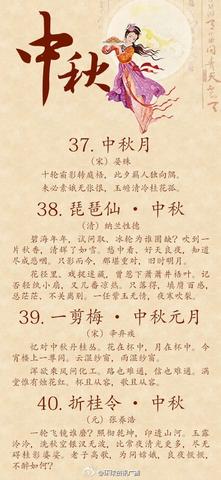 中秋
37. 中秋月
（宋）晏殊
十轮霜影转庭梧，此夕羁人独向隅。
未必素娥无怅恨，玉蟾清冷桂花孤。
38. 琵琶仙·中秋
（清）纳兰性德
碧海年年，试问取、冰轮为谁圆缺？吹到一
片秋香，清辉了如雪。愁中看、好天良夜，知道
尽成悲咽。只影而今，那堪重对，旧时明月。
花径里、戏捉迷藏，曾惹下萧萧井梧叶。记
否轻纨小扇，又几番凉热。只落得，填膺百感，
总茫茫、不关离别。一任紫玉无情，夜寒吹裂。
39. 一剪梅·中秋元月
（宋）辛弃疾
忆对中秋丹桂丛。花在杯中，月在杯中。今
宵楼上一尊同。云湿纱窗，雨湿纱窗。
浑欲乘风问化工。路也难通，信也难通。满
堂惟有烛花红。杯且从容，歌且从容。
40. 折桂令·中秋
（元）张养浩
一轮飞镜谁磨？照彻乾坤，印透山河。玉露
泠泠，洗秋空银汉无波，比常夜清光更多，尽无
碍桂影婆娑。老子高歌，为问嫦娥，良夜恹恹，
不醉如何？